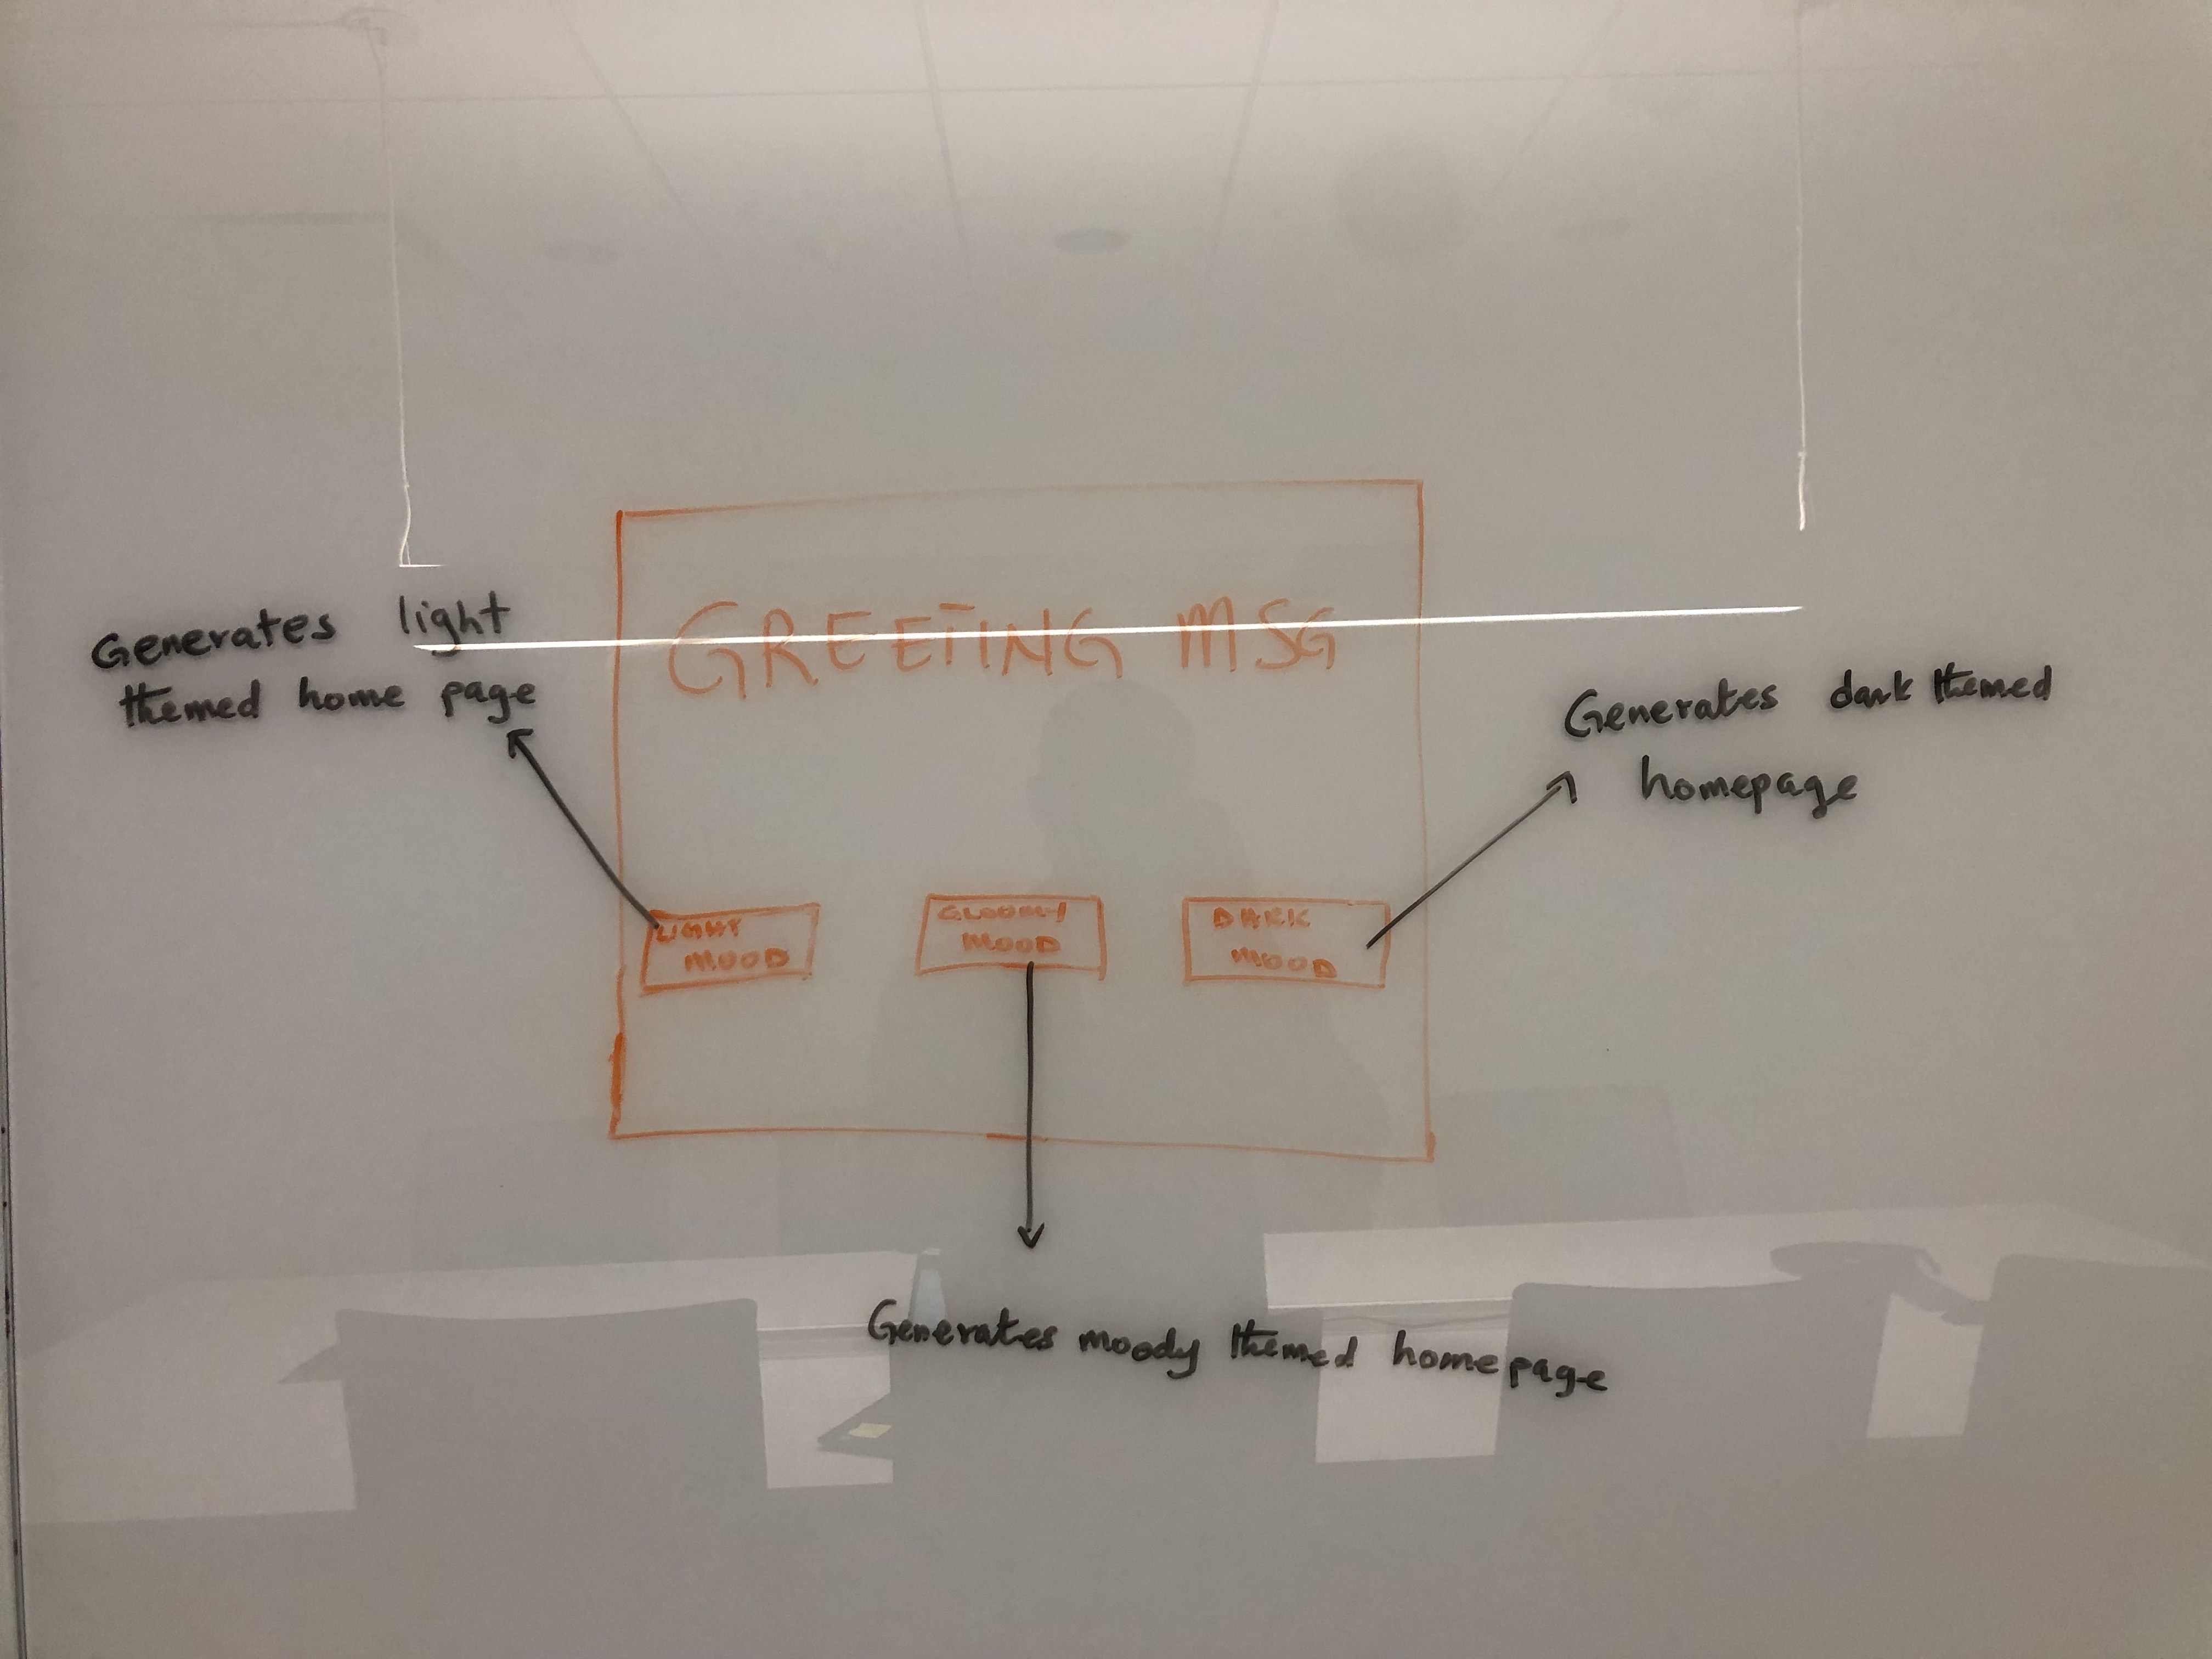 GREETING MSG
Generates light
themed home page
Generates dark themed
homepage
LIGHT
MOOD
GLOOMY
MOOD
DARK
MOOD
Generates moody themed homepage